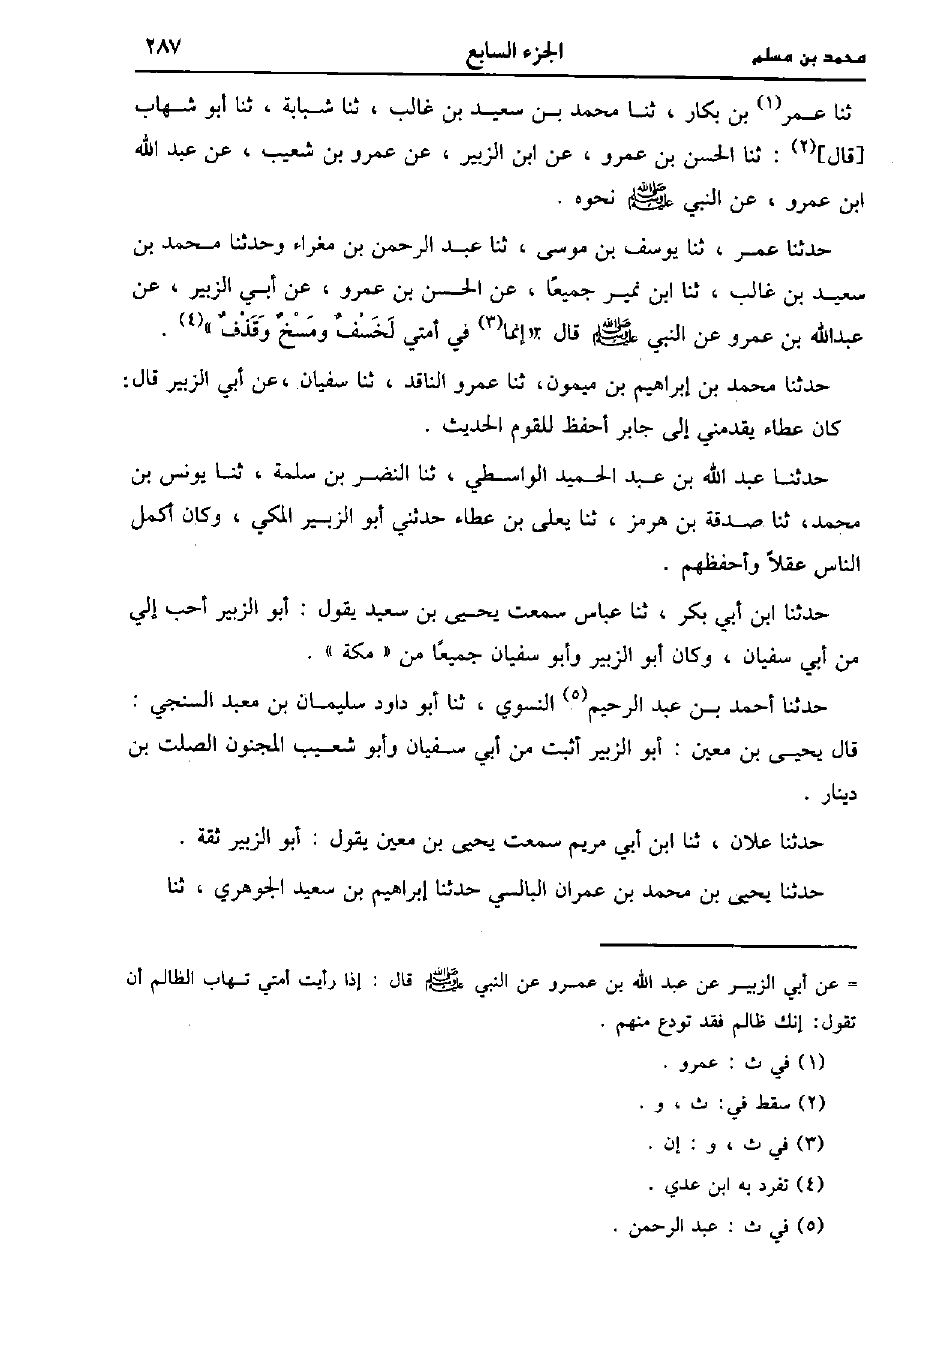 محمد بن مسلم الجزء السابع ٢٨٧
ثنا عمر(١) بن بكار ، ثنا محمد بن سعيد بن غالب ، ثنا شبابة ، ثنا أبو شهاب
[قال](٢) : ثنا الحسن بن عمرو ، عن ابن الزبير ، عن عمرو بن شعيب ، عن عبد الله
ابن عمرو ، عن النبي ﷺ نحوه .
حدثنا عمر ، ثنا يوسف بن موسى ، ثنا عبد الرحمن بن مغراء وحدثنا محمد بن
سعيد بن غالب ، ثنا ابن نمير جميعًا ، عن الحسن بن عمرو ، عن أبي الزبير ، عن
عبدالله بن عمرو عن النبي ﷺ قال «إنما(٣) في أمتي لَخَسْفٌ ومَسْخٌ وَقَذْفٌ »(٤) .
حدثنا محمد بن إبراهيم بن ميمون، ثنا عمرو الناقد ، ثنا سفيان ،عن أبي الزبير قال:
كان عطاء يقدمني إلى جابر أحفظ للقوم الحديث .
حدثنا عبد الله بن عبد الحميد الواسطي ، ثنا النضر بن سلمة ، ثنا يونس بن
محمد، ثنا صدقة بن هرمز ، ثنا يعلى بن عطاء حدثني أبو الزبير المكي ، وكان أكمل
الناس عقلاً وأحفظهم .
حدثنا ابن أبي بكر ، ثنا عباس سمعت يحيى بن سعيد يقول : أبو الزبير أحب إلي
من أبي سفيان ، وكان أبو الزبير وأبو سفيان جميعًا من « مكة » .
حدثنا أحمد بن عبد الرحيم(٥) النسوي ، ثنا أبو داود سليمان بن معبد السنجي :
قال يحيى بن معين : أبو الزبير أثبت من أبي سفيان وأبو شعيب المجنون الصلت بن
دينار .
حدثنا علان ، ثنا ابن أبي مريم سمعت يحيى بن معين يقول : أبو الزبير ثقة .
حدثنا يحيى بن محمد بن عمران البالسي حدثنا إبراهيم بن سعيد الجوهري ، ثنا
= عن أبي الزبير عن عبد الله بن عمرو عن النبي ﷺ قال : إذا رأيت أمتي تهاب الظالم أن
تقول: إنك ظالم فقد تودع منهم .
(١) في ث : عمرو .
(٢) سقط في: ث ، و .
(٣) في ث ، و : إن .
(٤) تفرد به ابن عدي .
(٥) في ث : عبد الرحمن .